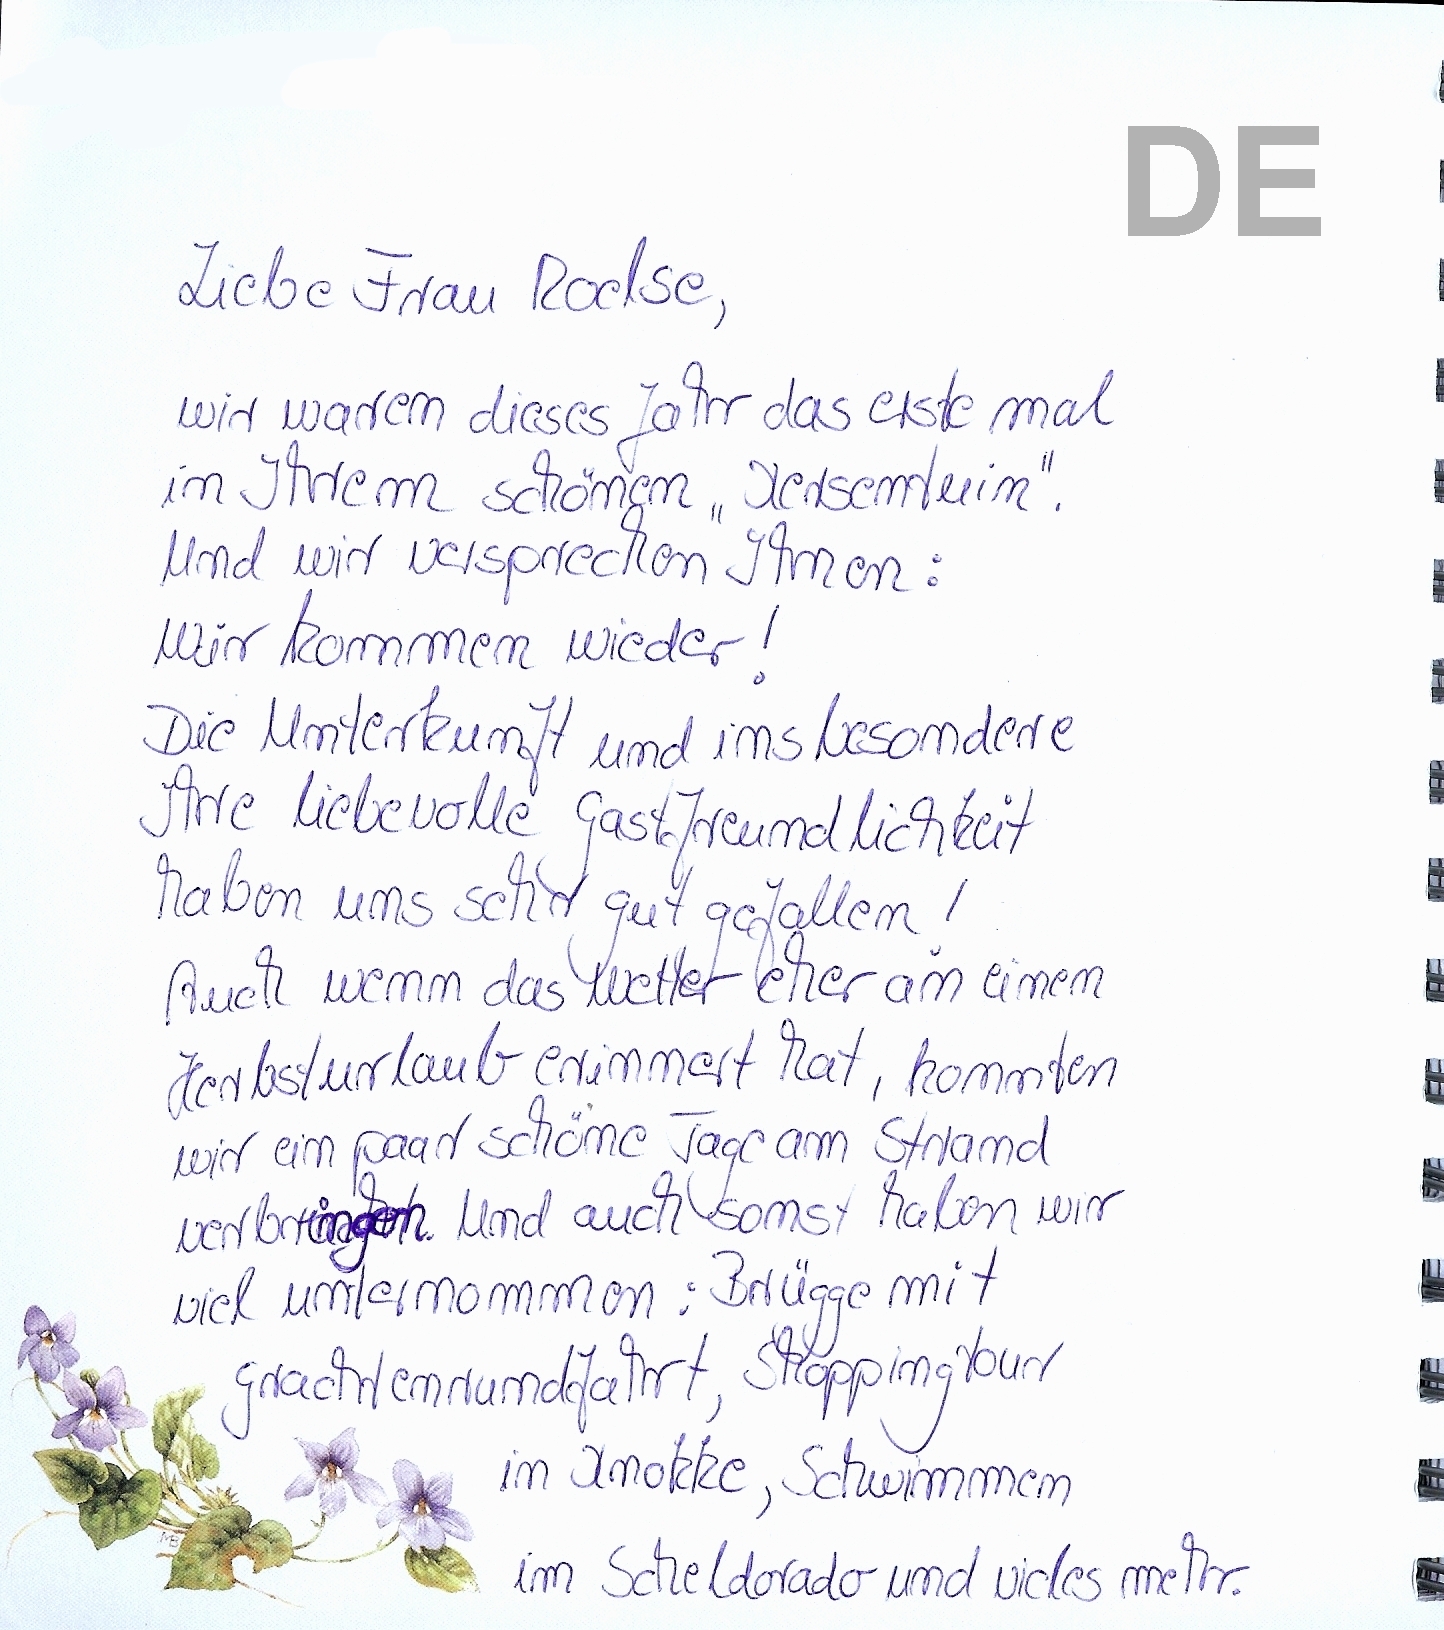 DE
Liebe Frau Roelse,
wir waren dieses Jahr das erste mal
in Ihrem schönen „Kersentuin".
Und wir versprechen Ihnen:
Wir kommen wieder!
Die Unterkunft und insbesondere
Ihre liebevolle Gastfreundlichkeit
haben uns sehr gut gefallen!
Auch wenn das Wetter eher an einen
Herbsturlaub erinnert hat, konnten
wir ein paar schöne Tage am Strand
verbringen. Und auch sonst haben wir
viel unternommen: Brügge mit
Grachtenrundfahrt, Shoppingtour
in Knokke, Schwimmen
im Scheldorado und vieles mehr.
MB